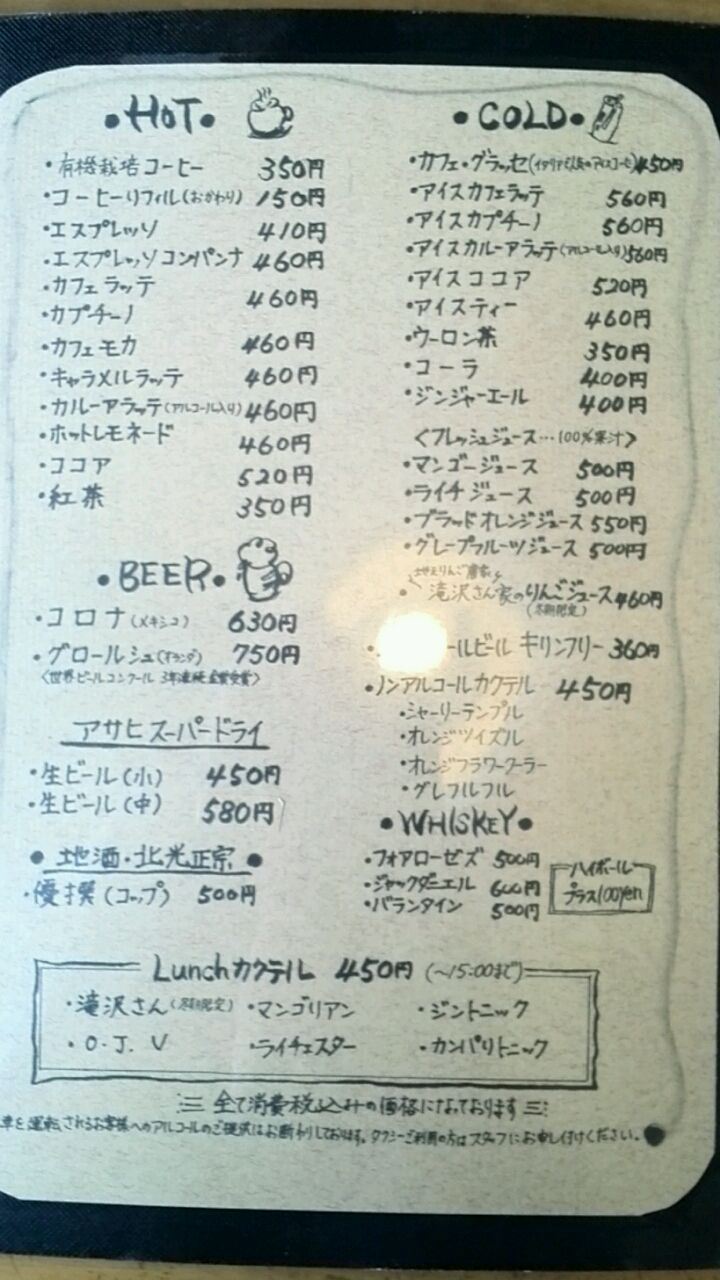 •HOT•
・有機栽培コーヒー 350円
・コーヒーリフィル(おかわり) 150円
・エスプレッソ 410円
・エスプレッソコンパンナ 460円
・カフェラッテ
・カプチーノ 460円
・カフェモカ 460円
・キャラメルラッテ 460円
・カルーアラッテ(アルコール入り) 460円
・ホットレモネード 460円
・ココア 520円
・紅茶 350円
•BEER•
・コロナ(メキシコ) 630円
・グロールシュ(オランダ) 750円
〈世界ビールコンクール 3年連続金賞受賞〉
アサヒスーパードライ
・生ビール(小) 450円
・生ビール(中) 580円
•地酒・北光正宗•
・優撰(コップ) 500円
•COLD•
・カフェ・グラッセ(イタリアで人気のアイスコーヒー) 450円
・アイスカフェラッテ 560円
・アイスカプチーノ 560円
・アイスカルーアラッテ(アルコール入り) 560円
・アイスココア 520円
・アイスティー 460円
・ウーロン茶 350円
・コーラ 400円
・ジンジャーエール 400円
〈フレッシュジュース…100%果汁〉
・マンゴージュース 500円
・ライチジュース 500円
・ブラッドオレンジジュース 550円
・グレープフルーツジュース 500円
地元りんご農家
・滝沢さん家のりんごジュース 460円
(冬期限定)
ールビール キリンフリー 360円
・ノンアルコールカクテル 450円
・シャーリーテンプル
・オレンジツイズル
・オレンジフラワークーラー
・グレフルフル
•WHISKEY•
・フォアローゼズ 500円
・ジャックダニエル 600円
・バランタイン 500円
ハイボール
プラス100yen
Lunchカクテル 450円 (〜15:00まで)
・滝沢さん(冬期限定) ・マンゴリアン ・ジントニック
・O.J.V ・ライチェスター ・カンパリトニック
全て消費税込みの価格になっております
車を運転されるお客様へのアルコールのご提供はお断りしております。タクシーご利用の方はスタッフにお申し付けください。